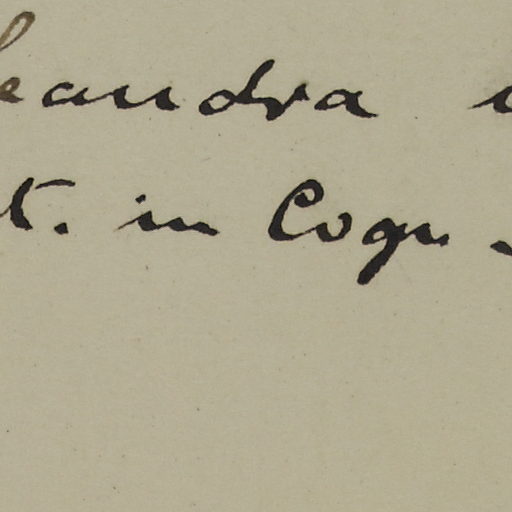 leandra
t. in Cogn